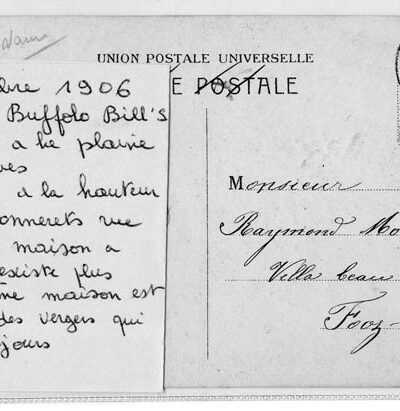 UNION POSTALE UNIVERSELLE
E POSTALE
bre 1906
Buffolo Bill's
a he plaine
es
à la hauteur
onnerets rue
maison a
existe plus
ne maison est
des vergers qui
jours
Monsieur
Raymond Mo
Villa beau
Fooz-